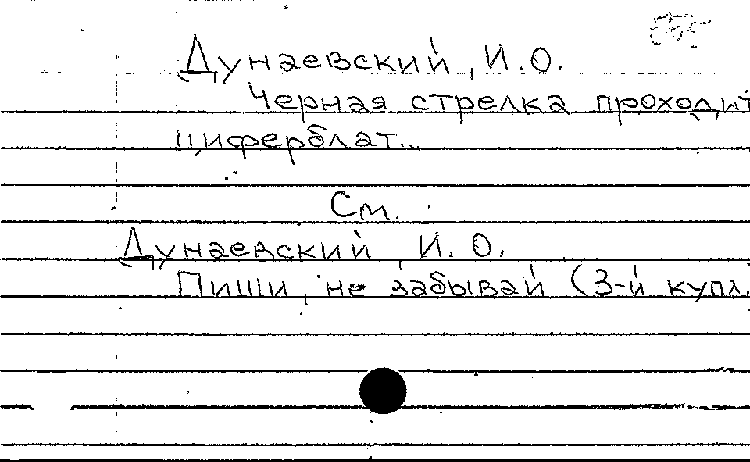 Дунаевский, И.О.
Черная стрелка проходит
циферблат...
См.
Дунаевский, И. О.
Пиши, не забывай (3-й купл.